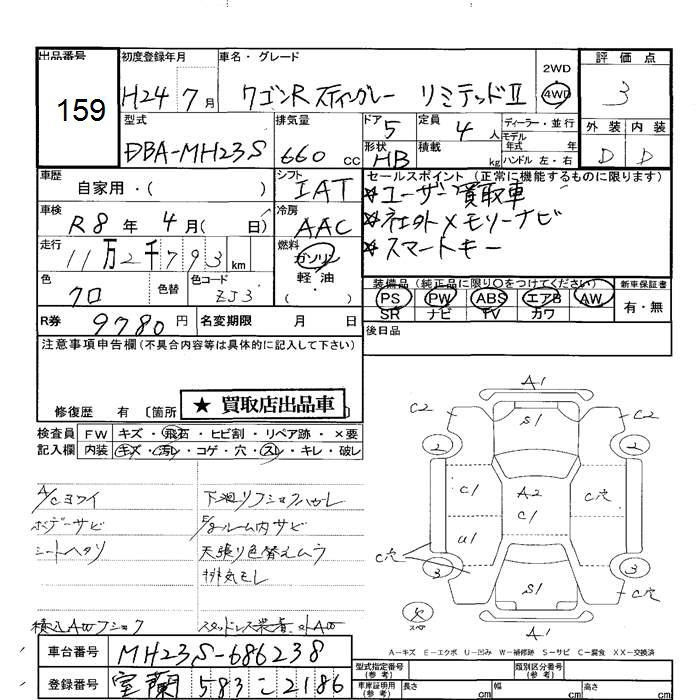 出品番号
159
初度登録年月
H24 7月
車名・グレード
ワゴンR スティングレー リミテッドⅡ
2WD
4WD
評価点
3
外装 内装
D D
型式
DBA-MH23S
排気量
660 cc
ドア
5
形状
HB
定員
4 人
積載
kg
ディーラー・並行
モデル
年式 年
ハンドル 左・右
車歴
自家用・(
シフト
IAT
セールスポイント (正常に機能するものに限ります)
☆ユーザー買取車
☆社外メモリーナビ
☆スマートキー
車検
R8年 4月( 日)
冷房
AAC
走行
11万2千793 km
燃料
ガソリン
軽油
( )
色
クロ
色替
色コード
ZJ3
装備品 (純正品に限り○をつけてください)
PS PW ABS エアB AW
SR ナビ TV カワ
新車保証書
有・無
R券 9780円
名変期限 月 日
後日品
注意事項申告欄(不具合内容等は具体的に記入して下さい)
修復歴 有 〔箇所
★ 買取店出品車
検査員 FW キズ・飛石・ヒビ割・リペア跡・×要
記入欄 内装 キズ・汚レ・コゲ・穴・スレ・キレ・破レ
A/Cヨワイ
ボデーサビ
シートヘタリ
下廻リフショクハガレ
F/gルーム内サビ
天張り色替えムラ
排気モレ
積込AWフショク
A1
C2 S1 C2
2 2
C1 A2 C穴
C1
U1
C穴
3 3
S1 C穴
スペア
A1
A-キズ E-エクボ U-凹み W-補修跡 S-サビ C-腐食 XX-交換済
車台番号 MH23S-686238
登録番号 室蘭 583 こ 2186
型式指定番号
(参考)
類別区分番号
(参考)
車庫証明用
(参考)
長さ cm
幅 cm
高さ cm